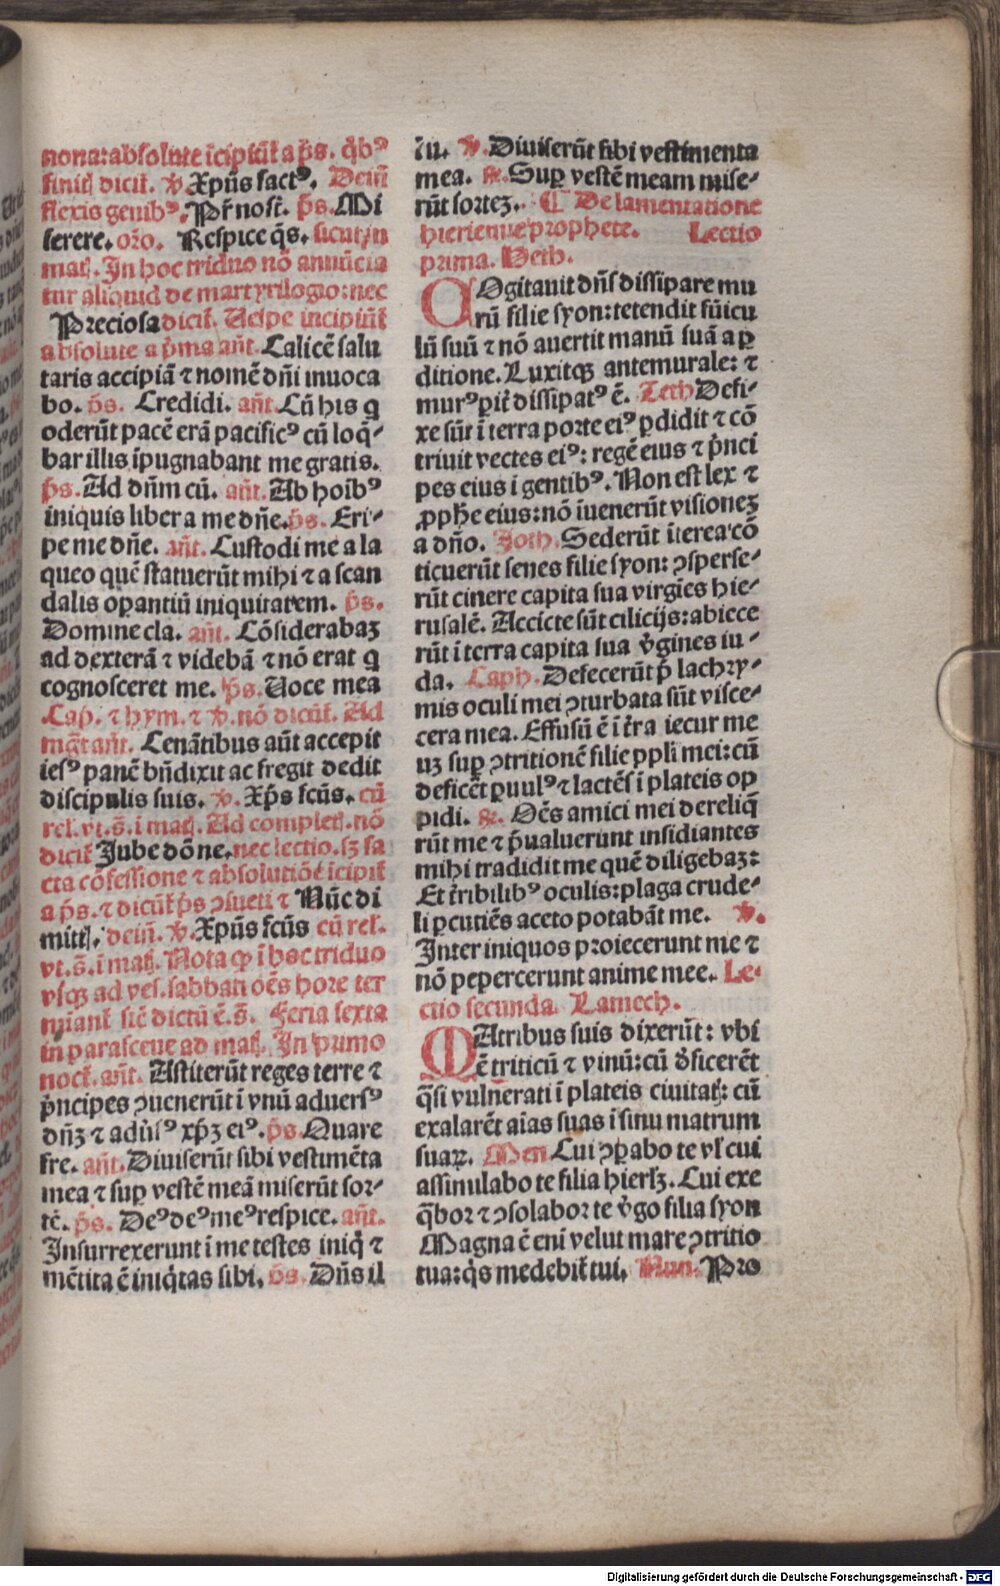 nona: absolute īcipiūt̄ a p̄s. q̄bꝰ
finit̄ʒ dicit̄. ℣ Xp̄us factꝰ. Dein̄
flexis genibꝰ. Pr̄ nost̄. p̄s. Mi
serere. or̄o. Respice q̄s. sicut in
mat̄ʒ. In hoc triduo nō annūcia
tur aliquid de martyrilogio: nec
Preciosa dicit̄. Uespe incipiūt̄
absolute a p̄ma an̄t. Calicē salu
taris accipiā ⁊ nomē dn̄i inuoca
bo. p̄s. Credidi. an̄t. Cū his q
oderūt pacē erā pacificꝰ cū loq̄-
bar illis īpugnabant me gratis.
p̄s. Ad dn̄m cū. an̄t. Ab hoībꝰ
iniquis libera me dn̄e. p̄s. Eri-
pe me dn̄e. an̄t. Custodi me a la
queo quē statuerūt mihi ⁊ a scan
dalis oꝑantiū iniquitatem. p̄s.
Domine cla. an̄t. Cōsiderabaʒ
ad dexterā ⁊ videbā ⁊ nō erat q
cognosceret me. p̄s. Uoce mea
Cap. ⁊ hym. ⁊ ℣. nō dicūt̄. Ad
mag̅t an̄t. Cenātibus aūt accepit
iesꝰ panē bn̄dixit ac fregit dedit
discipulis suis. ℣. Xp̄s fc̄us. cū
rel̄. vt. s̄. ī mat̄ʒ. Ad complet̄ʒ. nō
dicit̄ Jube dōne. nec lectio. sʒ fa
cta cōfessione ⁊ absolutiōe īcipit̄
a p̄s. ⁊ dicūt̄ p̄s ꝯsueti ⁊ Nūc di
mitt̄ʒ. dein̄. ℣. Xp̄us fc̄us cū rel̄.
vt. s̄. ī mat̄ʒ. Nota ꝙ ī hoc triduo
vsqʒ ad ves. sabbati oēs hore ter
minant̄ sic̄ dictū ē. s̄. Feria sexta
in parasceue ad mat̄ʒ. In primo
noct̄. an̄t. Astiterūt reges terre ⁊
p̄ncipes ꝯuenerūt ī vnū aduersꝰ
dn̄ʒ ⁊ adu̇l̄sꝰ xp̄ʒ eiꝰ. p̄s. Quare
fre. an̄t. Diuiserūt sibi vestimēta
mea ⁊ suꝑ vestē meā miserūt sor-
tē. p̄s. Deꝰ deꝰ meꝰ respice. an̄t.
Insurrexerunt ī me testes iniq̄ ⁊
mētita ē iniq̄tas sibi. p̄s. Dn̄s il
lu. ℣. Diuiserūt sibi vestimenta
mea. ℟. Suꝑ vestē meam mise-
rūt sorteʒ. ¶ De lamentatione
hieremie prophete. Lectio
prima. Heth.
COgitauit dn̄s dissipare mu
rū filie syon: tetendit fūicu
lū suū ⁊ nō auertit manū suā a ꝑ
ditione. Luxitqʒ antemurale: ⁊
murꝰ ꝑit̄ dissipatꝰ ē. Teth Defi-
xe sūt ī terra porte eiꝰ ꝑdidit ⁊ cō
triuit vectes eiꝰ: regē eius ⁊ p̄nci
pes eius ī gentibꝰ. Non est lex ⁊
ꝓph̄e eius: nō īuenerūt visioneʒ
a dn̄o. Joth. Sederūt ī terea cō
ticuerūt senes filie syon: ꝯsperse-
rūt cinere capita sua virgīes hie-
rusalē. Accicte sūt cilicijs: abiece
rūt ī terra capita sua v̄gines iu-
da. Caph. Defecerūt p̄ lachry-
mis oculi mei ꝯturbata sūt visce-
cera mea. Effusū ē ī t̄ra iecur me
uʒ suꝑ ꝯtritionē filie ppl̄i mei: cū
deficēt ꝑuulꝰ ⁊ lactēs ī plateis op
pidi. ℟. Oēs amici mei dereliq̄
rūt me ⁊ p̄ualuerunt insidiantes
mihi tradidit me quē diligebaʒ:
Et t̄ribilibꝰ oculis: plaga crude-
li ꝑcutiēs aceto potabāt me. ℣.
Inter iniquos proiecerunt me ⁊
nō pepercerunt anime mee. Le-
ctio secunda. Lamech.
MAtribus suis dixerūt: vbi
ē triticū ⁊ vinū: cū d̄ficerēt
q̄si vulnerati ī plateis ciuitatʒ: cū
exalarēt aīas suas ī sinu matrum
suaꝝ. Mem Cui ꝯꝑabo te vl̄ cui
assimulabo te filia hierl̄ʒ. Cui exe
q̄bor ⁊ ꝯsolabor te v̄go filia syon
Magna ē enī velut mare ꝯtritio
tua: q̄s medebit̄ tui. Nun. Pro
Digitalisierung gefördert durch die Deutsche Forschungsgemeinschaft - DFG